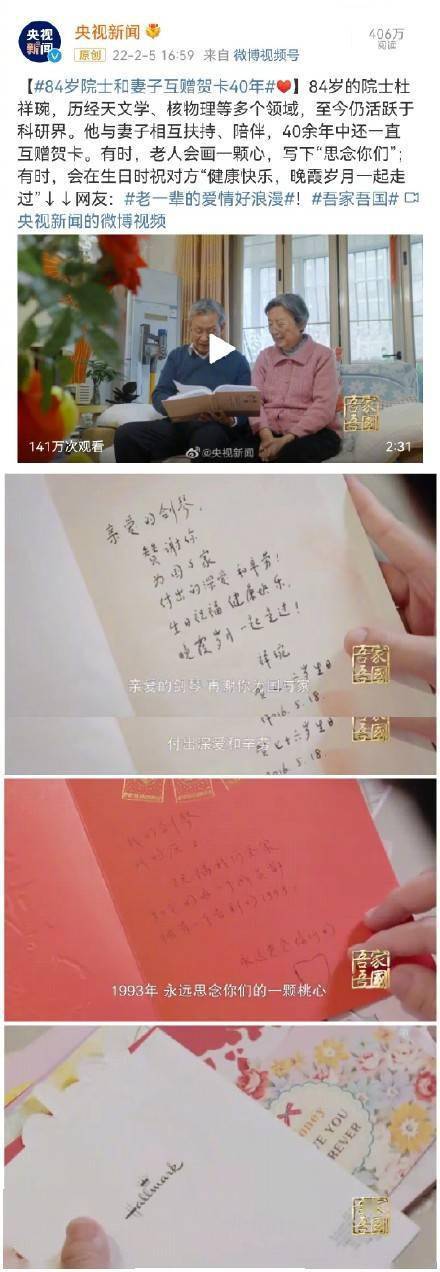 央视
新闻
央视新闻
原创
22-2-5 16:59 来自 微博视频号
406万
阅读
【#84岁院士和妻子互赠贺卡40年#❤️】84岁的院士杜
祥琬，历经天文学、核物理等多个领域，至今仍活跃于
科研界。他与妻子相互扶持、陪伴，40余年中还一直
互赠贺卡。有时，老人会画一颗心，写下“思念你们”；
有时，会在生日时祝对方“健康快乐，晚霞岁月一起走
过”↓↓网友：#老一辈的爱情好浪漫#！#吾家吾国#
央视新闻的微博视频
吾家
吾国
141万次观看
@央视新闻
2:31
亲爱的剑琴，
赞谢你
为国与家
付出的深爱和辛劳！
生日祝福 健康快乐，
晚霞岁月一起走过！
祥琬
六岁生日
2016.5.18.
吾家
吾国
亲爱的剑琴 再谢你为国与家
付出深爱和辛劳
七十六岁生日
2016.5.18.
吾家
吾国
我的剑琴
1993年 永远思念你们的一颗桃心
吾家
吾国
Hallmark
oney
E YOU
REVER
吾家
吾国